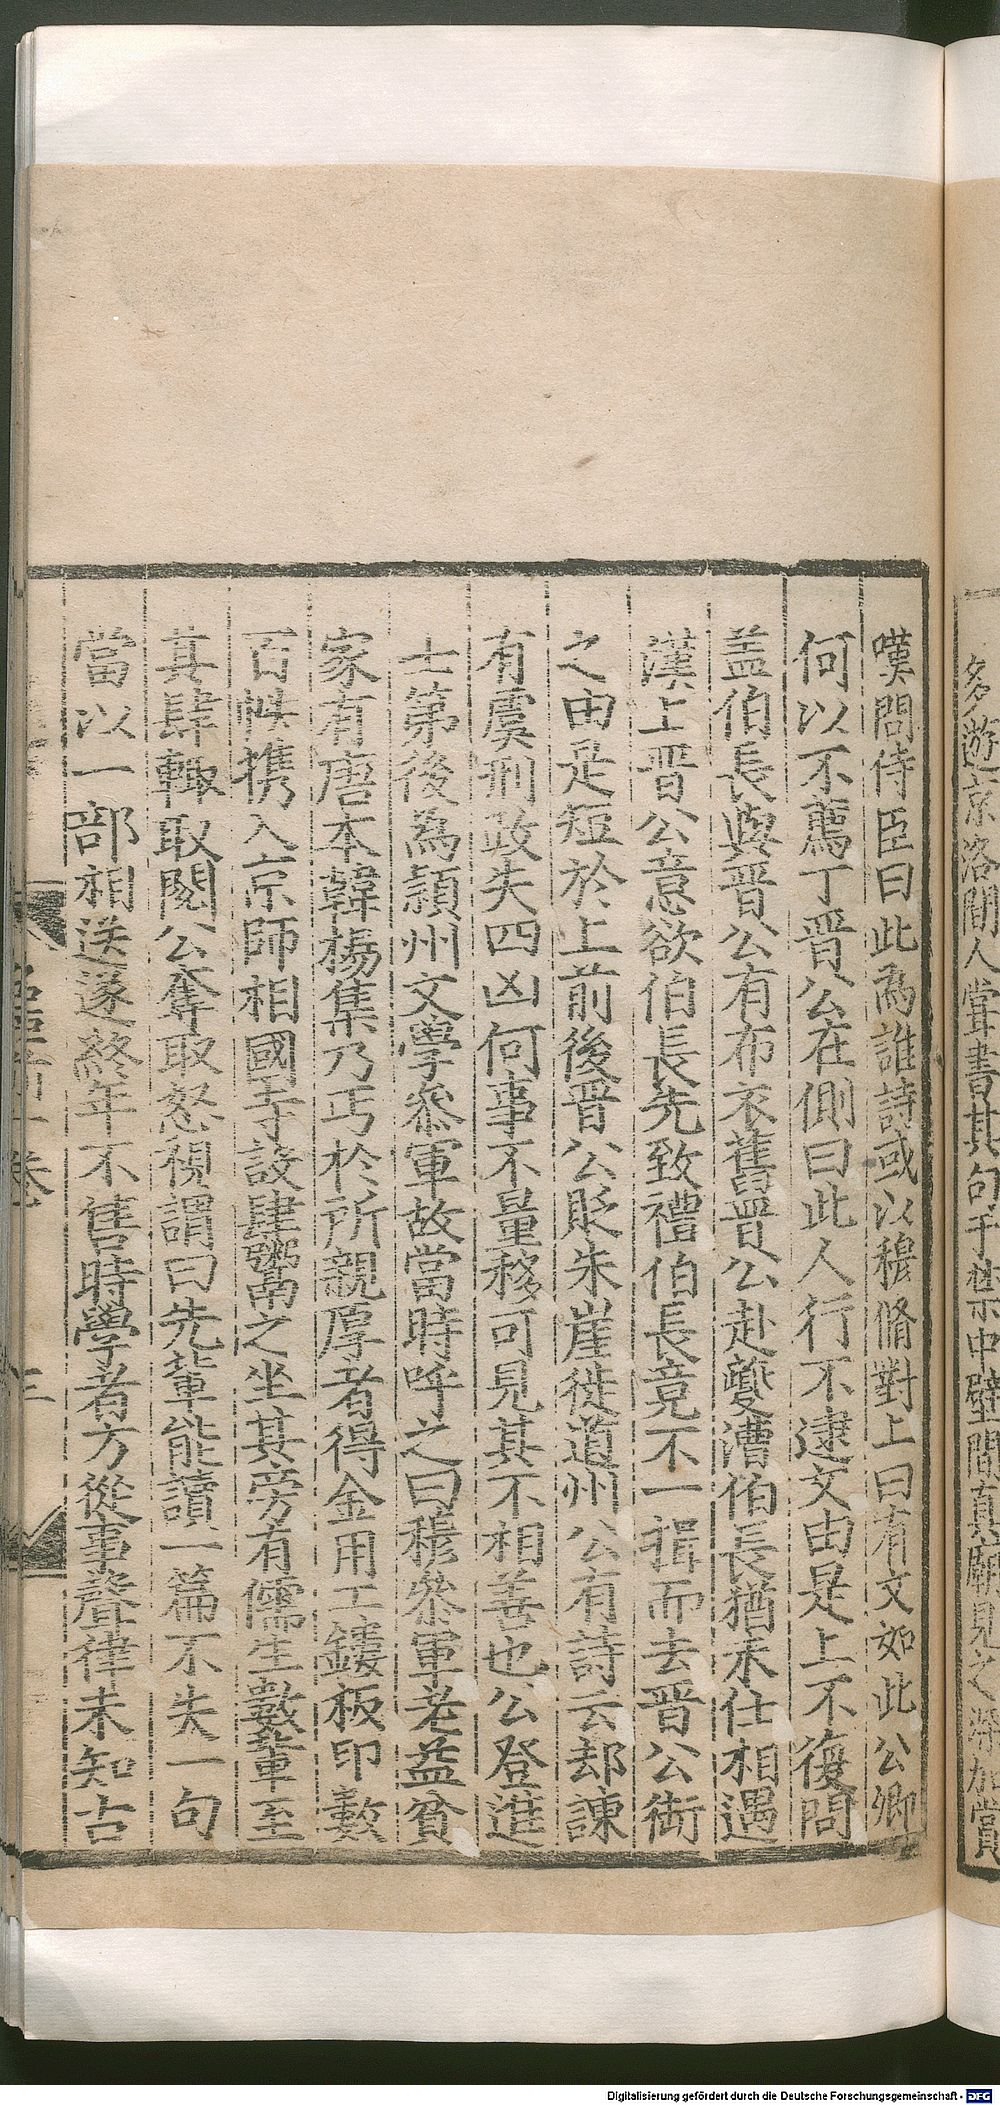 多遊京洛間人嘗書其句于禁中壁間真廟見之深加賞
嘆問侍臣曰此為誰詩或以穆脩對上曰有文如此公卿
何以不薦丁晋公在側曰此人行不逮文由是上不復問
盖伯長與晋公有布衣舊晋公赴夔漕伯長猶未仕相遇
漢上晋公意欲伯長先致禮伯長竟不一揖而去晋公銜
之由是短於上前後晋公貶朱崖徙道州公有詩云却諫
有虞刑政失四凶何事不量移可見其不相善也公登進
士第後為潁州文學參軍故當時呼之曰穆參軍老益貧
家有唐本韓柳集乃丐於所親厚者得金用工鏤板印數
百帙携入京師相國寺設肆鬻之坐其旁有儒生數輩至
其肆輙取閱公奪取怒視謂曰先輩能讀一篇不失一句
當以一部相送遂終年不售時學者方從事聲律未知古
卷
三
Digitalisierung gefördert durch die Deutsche Forschungsgemeinschaft - DFG